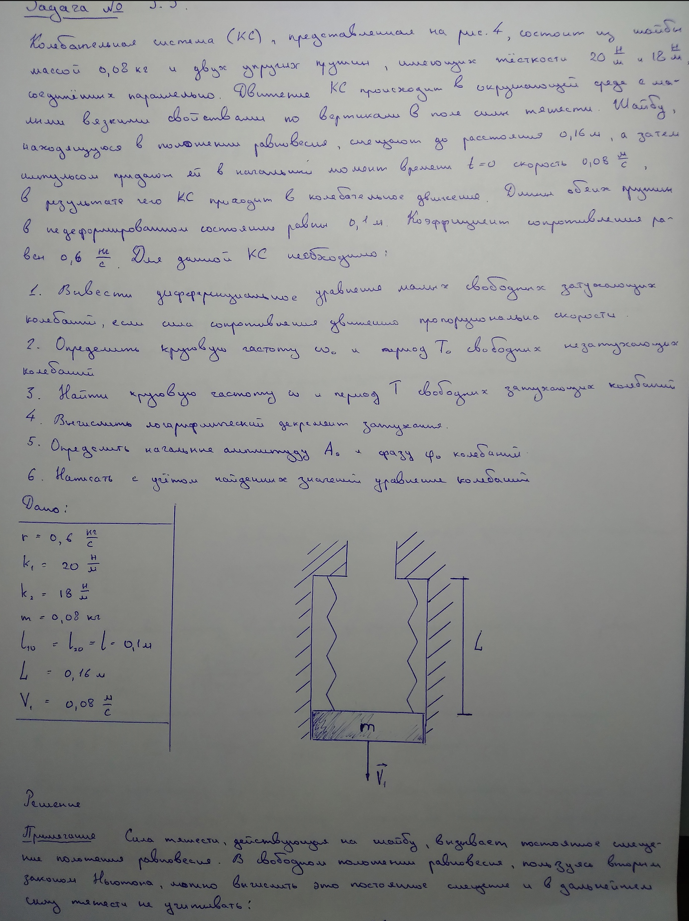 Задача № 3.3.
Колебательная система (КС), представленная на рис. 4, состоит из шайбы
массой 0,08 кг и двух упругих пружин, имеющих жёсткости 20 Н/м и 18 Н/м,
соединённых параллельно. Движение КС происходит в окружающей среде с ма-
лыми вязкими свойствами по вертикали в поле силы тяжести. Шайбу,
находящуюся в положении равновесия, смещают до расстояния 0,16 м, а затем
импульсом придают ей в начальный момент времени t=0 скорость 0,08 м/с,
в результате чего КС приходит в колебательное движение. Длины обеих пружин
в недеформированном состоянии равны 0,1 м. Коэффициент сопротивления ра-
вен 0,6 кг/с. Для данной КС необходимо:
1. Вывести дифференциальное уравнение малых свободных затухающих
колебаний, если сила сопротивления движению пропорциональна скорости.
2. Определить круговую частоту ω₀ и период T₀ свободных незатухающих
колебаний
3. Найти круговую частоту ω и период T свободных затухающих колебаний
4. Вычислить логарифмический декремент затухания.
5. Определить начальные амплитуду A₀ и фазу φ₀ колебаний.
6. Написать с учётом найденных значений уравнение колебаний
Дано:
r = 0,6 кг/с
k₁ = 20 Н/м
k₂ = 18 Н/м
m = 0,08 кг
l₁₀ = l₂₀ = l = 0,1 м
L = 0,16 м
V₁ = 0,08 м/с
L
m
V⃗₁
Решение
Примечание Сила тяжести, действующая на шайбу, вызывает постоянное смеще-
ние положения равновесия. В свободном положении равновесия, пользуясь вторым
законом Ньютона, можно вычислить это постоянное смещение и в дальнейшем
силу тяжести не учитывать: